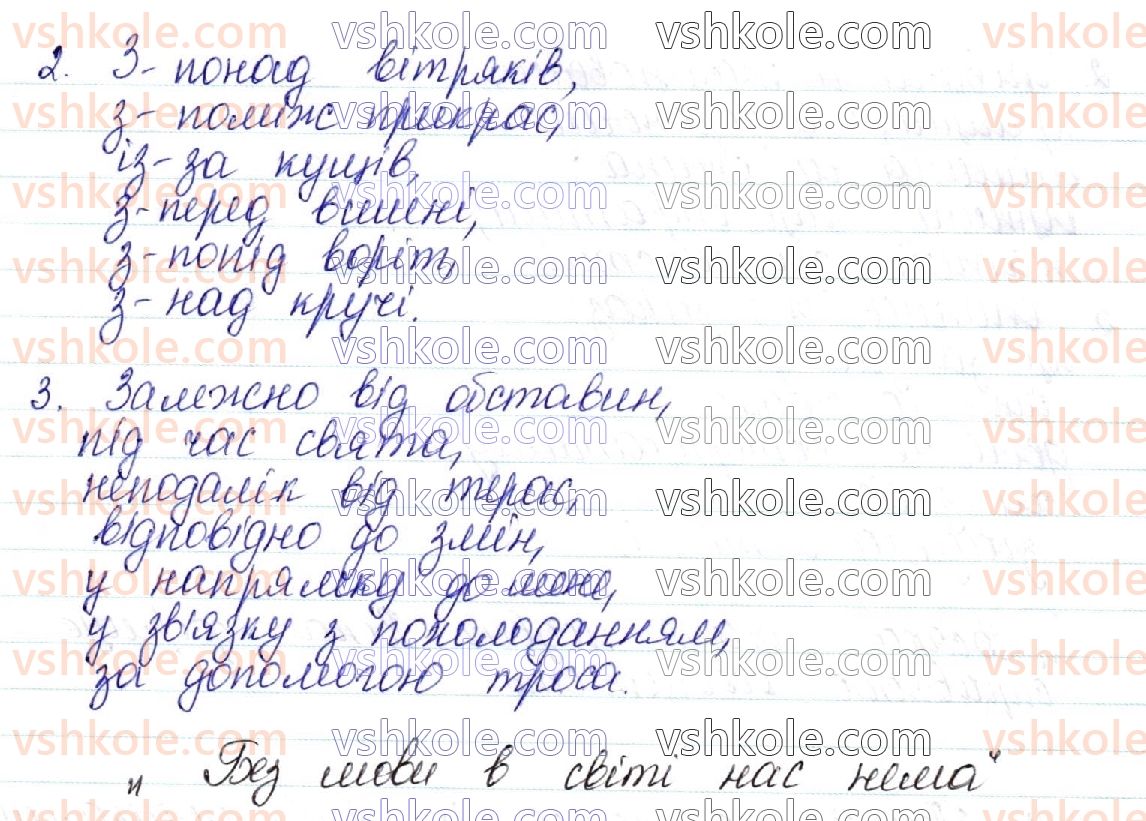 2. З-понад вітряків,
з-поміж прикрас,
із-за кущів,
з-перед вишні,
з-попід воріт,
з-над кручі.
3. Залежно від обставин,
під час свята,
неподалік від терас,
відповідно до змін,
у напрямку до мене,
у зв'язку з похолоданням,
за допомогою троса.
„ Без мови в світі нас нема"